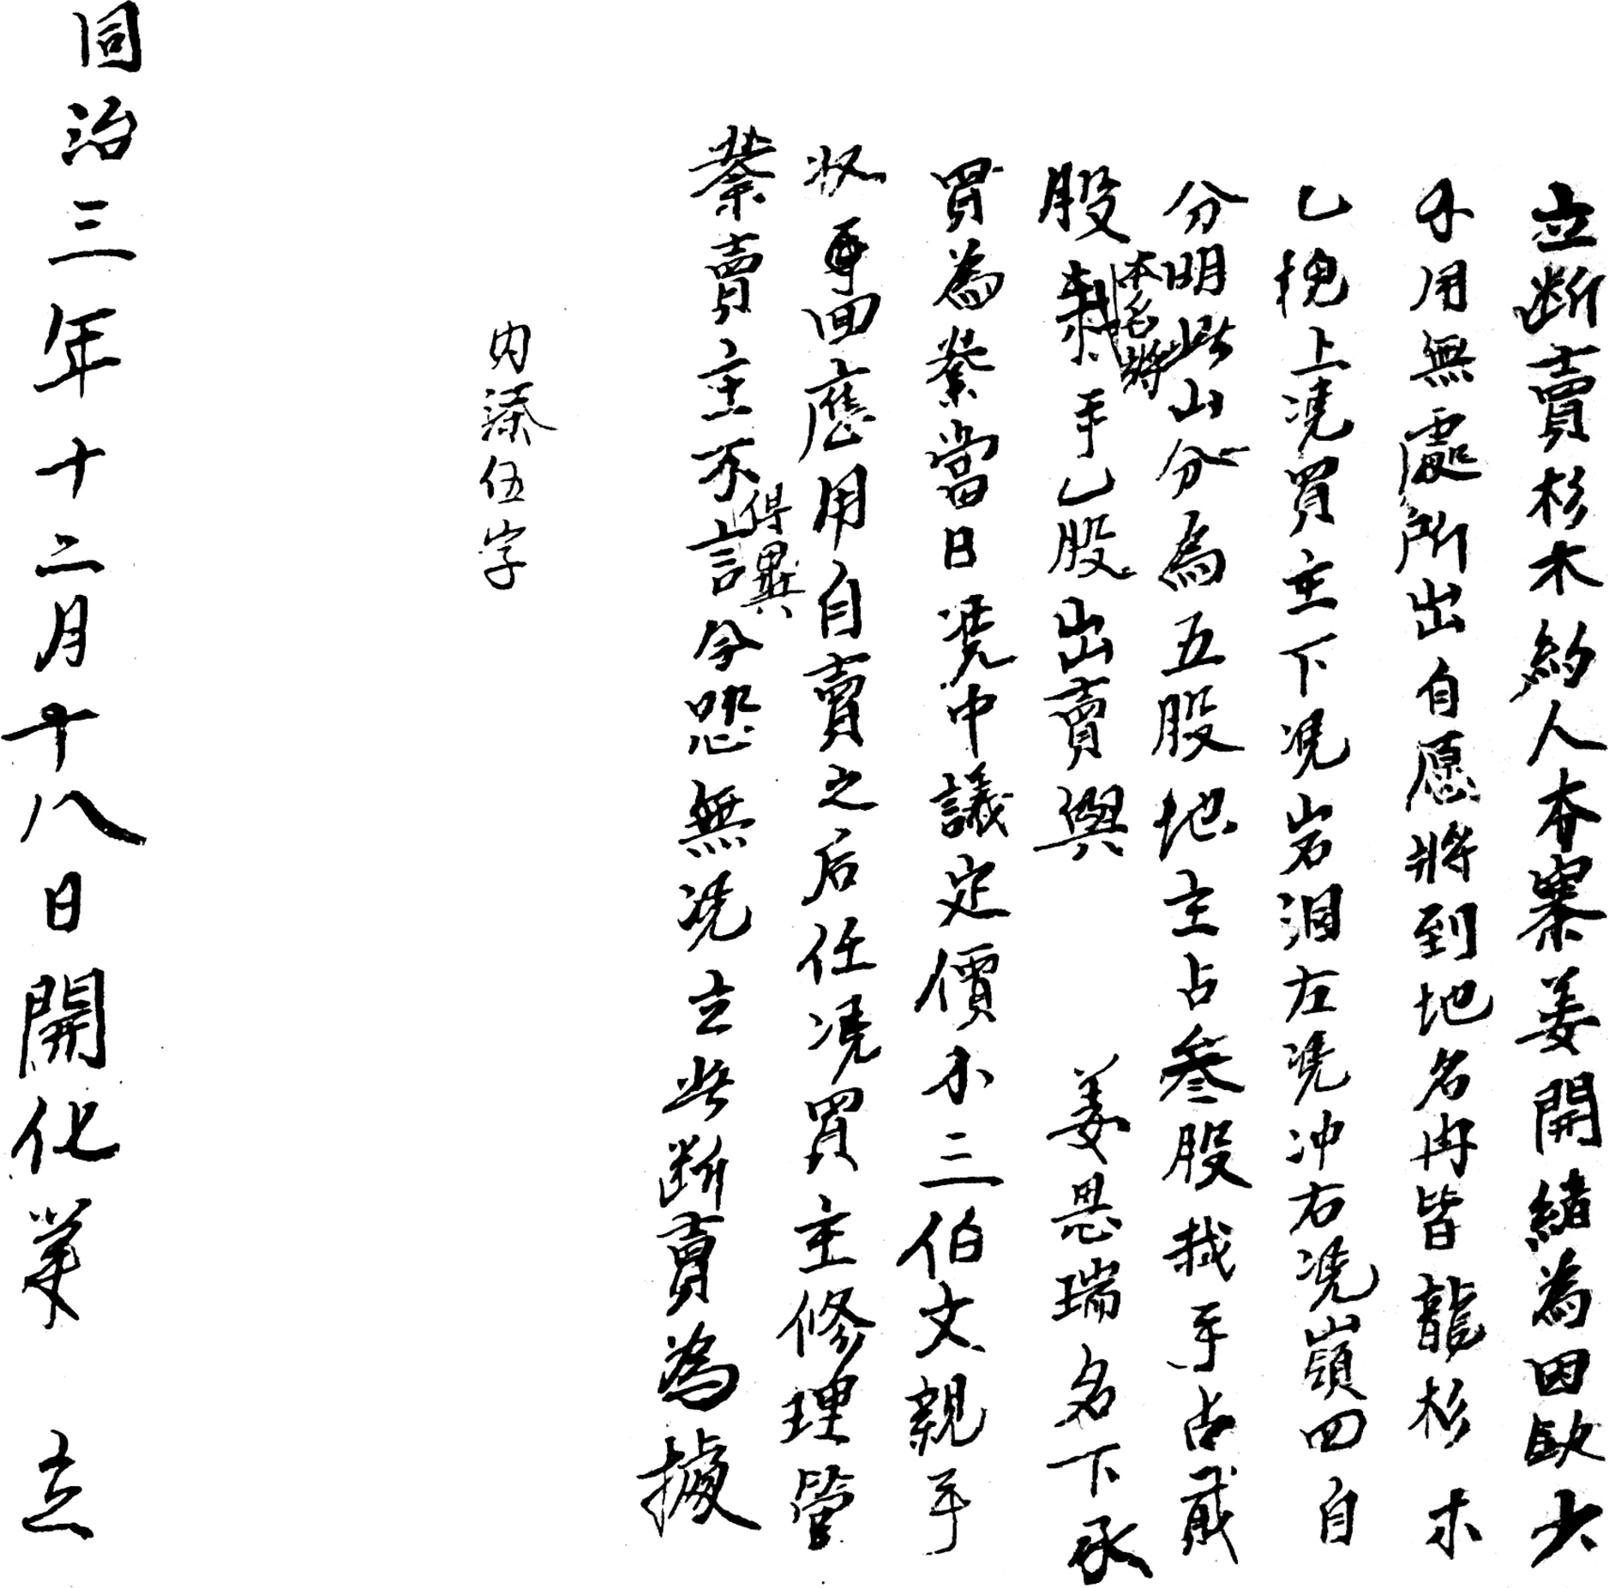 立断賣杉木約人本寨姜開緒為因缺少
不用無處所出自愿將到地名冉皆龍杉木
乙塊上凴買主下凴岩洞左凴冲右凴嶺四自
分明此山分為五股地主占叁股栽手占贰
股本名將栽手乙股出賣與 姜恩瑞名下承
買為業當日凴中議定價小三伯文親手
收再回應用自賣之后任凴買主修理管
業賣主不得異言今恐無凴立此断賣為據
内添伍字
同治三年十二月十八日開化筆 立